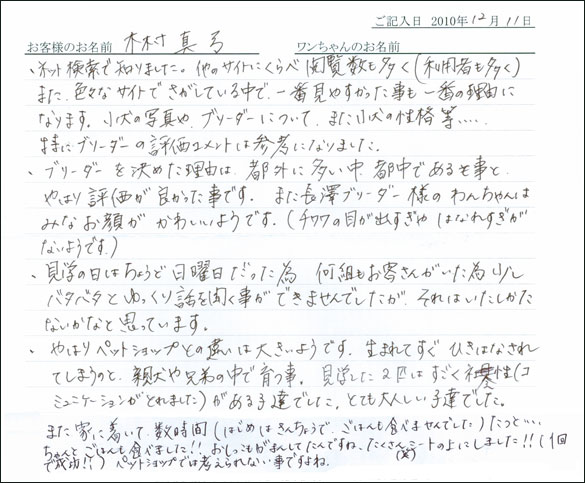 ご記入日 2010年12月11日
お客様のお名前 木村 真弓 ワンちゃんのお名前
・ネット検索で知りました。他のサイトにくらべ閲覧数も多く(利用者も多く)
また、色々なサイトでさがしている中で、一番見やすかった事も一番の理由に
なります。小犬の写真や、ブリーダーについて、また小犬の性格等.....
特にブリーダーの評価コメントは参考になりました。
・ブリーダーを決めた理由は、都外に多い中都中である事と、
やはり評価が良かった事です。また長澤ブリーダー様のわんちゃんは
みなお顔がかわいいようです。(チワワの目が出すぎや はなれすぎが
ないようです。)
・見学の日はちょうど日曜日だった為 何組もお客さんがいた為少し
バタバタとゆっくり話を聞く事ができませんでしたが、それはいたしかた
ないかなと思っています。
・やはりペットショップとの違いは大きいようです。生まれてすぐひきはなされ
てしまうのと、親犬や兄弟の中で育つ事。見学した2匹はすごく社交性(コ
ミュニケーションがとれました)がある子達でした。とても大人しい子達でした。
また家に着いて、数時間(はじめはきんちょうで、ごはんも食べませんでした)たつと...
ちゃんとごはんも食べました!! おしっこもがまんしてたんですね、たくさんシートの上にしました!!(1回
で成功!!) ペットショップでは考えられない事ですよね。(笑)